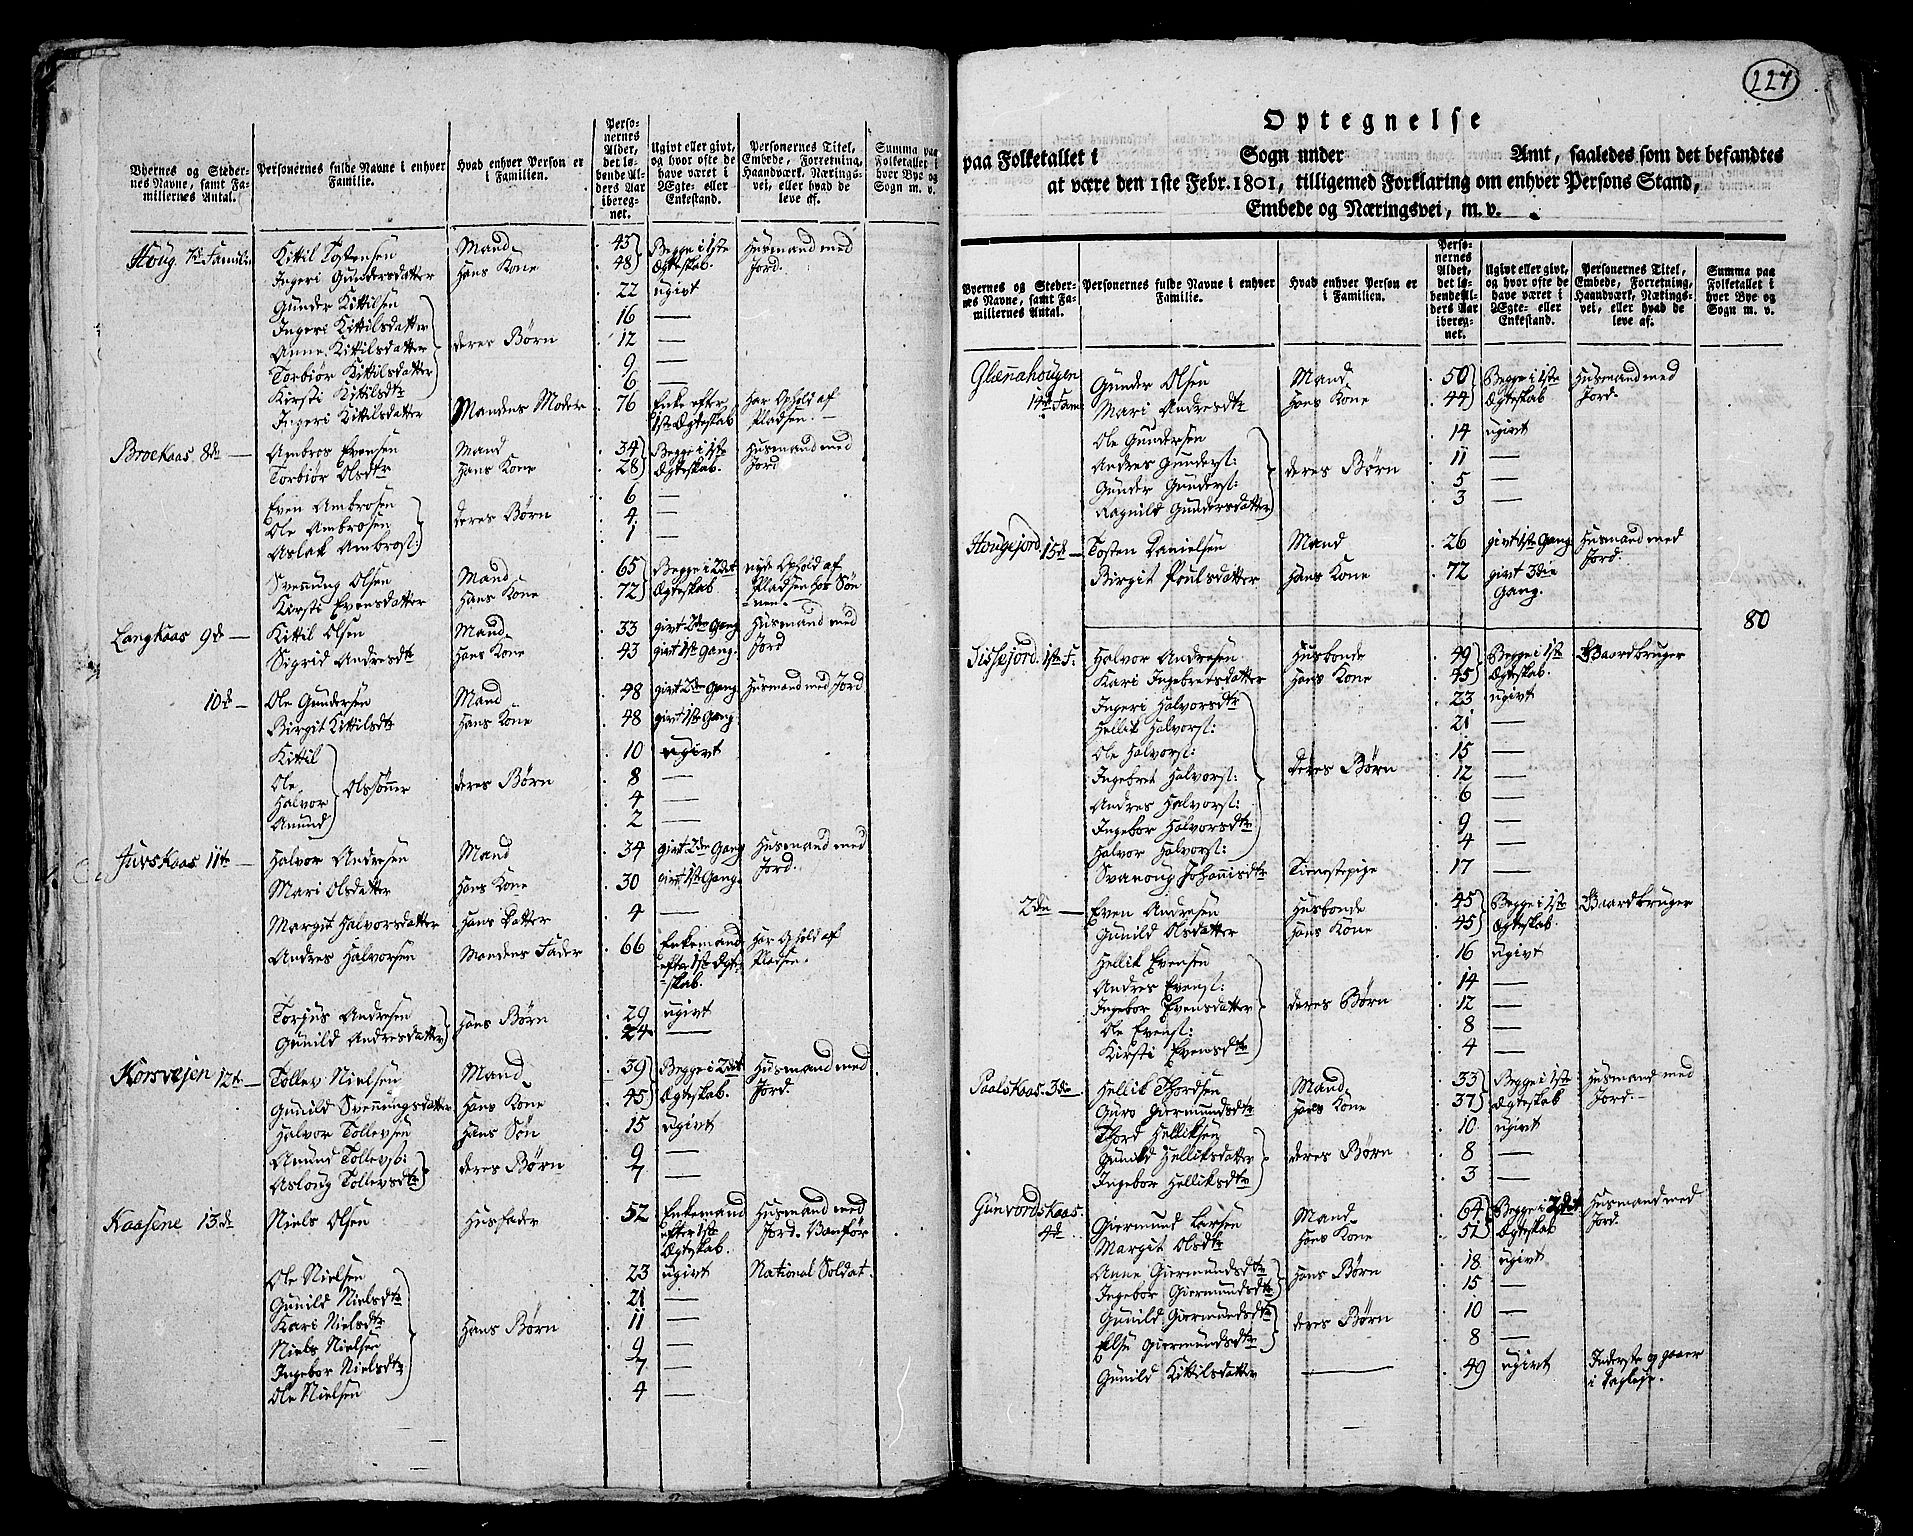 Byernes og Steder-
nes Navne, samt Fa-
miliernes Antal.
Personernes fulde Navne i enhver
Familie.
Hvad enhver Person er
i Familien.
Perso-
nernes
Alder,
det lø-
bende Al-
ders Aar
ibereg-
net.
Ugivt eller givt,
og hvor ofte de
have været i
Ægte- eller
Enkestand.
Personernes Titel,
Embede, Forretning,
Haandværk, Nærings-
vei, eller hvad de
leve af.
Summa paa
Folketallet i
hver Bye og
Sogn m. v.
Houg 7de Familie Kittil Tostensen Mand 43 Begge i 1ste Husmand med
Ingeri Gundersdatter Hans Kone 48 Ægteskab. Jord.
Gunder Kittilsen 22 ugivt
Ingeri Kittilsdatter 16 —
Anne Kittilsdatter deres Børn 12 —
Torbiør Kittilsdatter 9 —
Kirsti Kittilsdtr 6 —
Ingeri Kittilsdatter Mandens Moder 76 Enke efter Har Ophold af
1ste Ægteskab Pladsen. —
Broekaas 8de — Ambros Evensen Mand 34 Begge i 1ste Husmand med
Torbiør Olsdtr Hans Kone 28 Ægteskab. Jord
Even Ambrosen 6 —
Ole Ambrosen deres Børn 4 —
Aslak Ambros: 1 —
Svennung Olsen Mand 65 Begge i 2det nyde Ophold af
Kirsti Evensdatter Hans Kone 72 Ægteskab Pladsen hos Søn
nen. —
Langkaas 9de — Kittil Olsen Mand 33 givt 2den Gang Husmand med
Sigrid Andresdtr Hans Kone 43 givt 1ste Gang. Jord
10de — Ole Gundersen Mand 48 givt 2den Gang Husmand med Jord
Birgit Kittilsdtr Hans Kone 48 givt 1ste Gang
Kittil 10 ugivt
Ole Olssønner deres Børn 8 —
Halvor 4 —
Anund 2 —
Juvskaas 11te — Halvor Andresen Mand 34 givt 2den Gang Husmand med
Mari Olsdatter Hans Kone 30 givt 1ste Gang. Jord.
Margit Halvorsdatter Hans Datter 4 —
Andres Halvorsen Mandens Fader 66 Enkemand Har Ophold af
efter 1ste Ægte- Pladsen.
skab.
Torjus Andresen Hans Børn 29 ugivt
Gunild Andresdatter 24 —
Korsvejen 12te — Tollev Nielsen Mand 39 Begge i 2det Husmand med
Gunild Svennungsdatter Hans Kone 45 Ægteskab. Jord.
Halvor Tollevsen Hans Søn 15 ugivt
Anund Tollevs: deres Børn 9 —
Aslong Tollevsdtr 7 —
Kaasene 13de Niels Olsen Husfader 52 Enkemand Husmand med
efter 1ste Jord.
Ægteskab.
Ole Nielsen 23 ugivt National Soldat.
Gunild Nielsdtr 21 —
Kari Nielsdtr 11 —
Niels Nielsen Hans Børn 9 —
Ingebor Nielsdtr 7 —
Ole Nielsen 4 —
227
Optegnelse
paa Folketallet i Sogn under Amt, saaledes som det befandtes
at være den 1ste Febr. 1801, tilligemed Forklaring om enhver Persons Stand,
Embede og Næringsvei, m. v.
Byernes og Steder-
nes Navne, samt Fa-
miliernes Antal.
Personernes fulde Navne i enhver
Familie.
Hvad enhver Person er
i Familien.
Perso-
nernes
Alder,
det lø-
bende Al-
ders Aar
ibereg-
net.
Ugivt eller givt,
og hvor ofte de
have været i
Ægte- eller
Enkestand.
Personernes Titel,
Embede, Forretning,
Haandværk, Nærings-
vei, eller hvad de
leve af.
Summa paa
Folketallet i
hver Bye og
Sogn m. v.
Glænahougen Gunder Olsen Mand 50 Begge i 1ste Husmand med
14de Fam: Mari Andresdtr Hans Kone 44 Ægteskab Jord.
Ole Gundersen 14 ugivt
Andres Gunders: deres Børn 11 —
Gunder Gunders: 5 —
Ragnild Gundersdatter 3 —
Hougejord 15de — Tosten Danielsen Mand 26 givt 1ste Gang Husmand med
Birgit Poulsdatter Hans Kone 72 givt 3die Jord.
Gang.
80
Tissejord. 1ste F. Halvor Andresen Husbonde 49 Begge i 1ste Gaardbruger
Kari Ingebretsdatter Hans Kone 45 Ægteskab.
Ingeri Halvorsdtr 23 ugivt
Hellik Halvors: 21 —
Ole Halvors: 15 —
Ingebret Halvors: deres Børn 12 —
Andres Halvors: 6 —
Ingebor Halvorsdtr 9 —
Halvor Halvors: 4 —
Svanoug Johannisdtr Tienestepige 17 —
2den — Even Andresen Husbonde 45 Begge i 1ste Gaardbruger
Gunild Olsdatter Hans Kone 45 Ægteskab.
Hellik Evensen 16 ugivt
Andres Evens: 14 —
Ingebor Evensdatter deres Børn 12 —
Ole Evens: 8 —
Kirsti Evensdtr 4 —
Paalskaas. 3die Hellik Thordsen Mand 33 Begge i 1ste Husmand med
Guro Giermundsdtr Hans Kone 37 Ægteskab Jord. —
Thord Helliksen 10 ugivt
Gunild Helliksdatter deres Børn 8 —
Ingebor Helliksdtr 3 —
Gunvordskaas. Giermund Larsen Mand 64 Begge i 2det Husmand med
4de Margit Olsdtr Hans Kone 51 Ægteskab Jord.
Anne Giermundsdtr Hans Børn 18 ugivt
Ingebor Giermundsdtr 15 —
Gunild Giermundsdtr deres Børn 10 —
Else Giermundsdtr 8 —
Gunild Kittilsdatter — 49 ugivt Inderste og gaaer
i Dagleje.